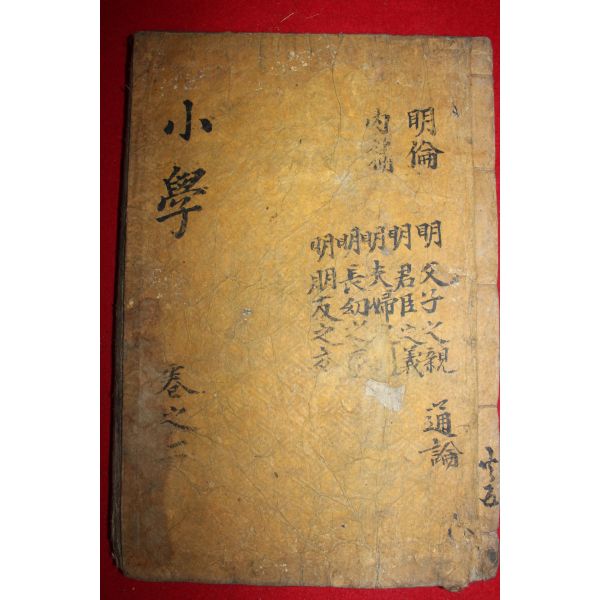 小學
卷之二
明倫
內篇
明父子之親
明君臣之義
明夫婦之
明長幼之
明朋友之交
通論
共五